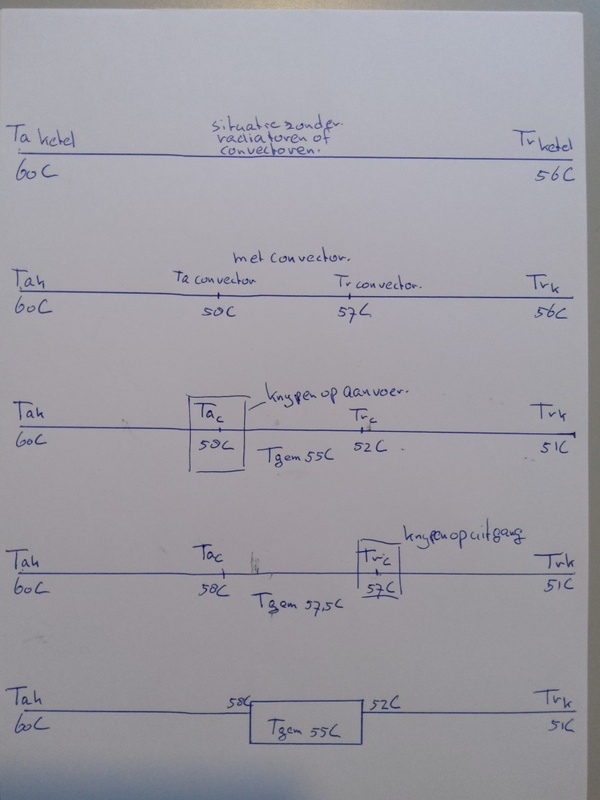 situatie zonder
Ta ketel radiatoren of Tr ketel
convectoren.
60C 56C
met convector.
Tak Ta convector Tr convector. Trk
60C 58C 57C 56C
knijpen op aanvoer.
Tak Tac Trc Trk
60C 58C 52C 51C
Tgem 55C
knijpen op uitgang
Tak Tac Trc Trk
60C 58C 57C 51C
Tgem 57,5C
Tak 58C 52C Trk
60C Tgem 55C 51C